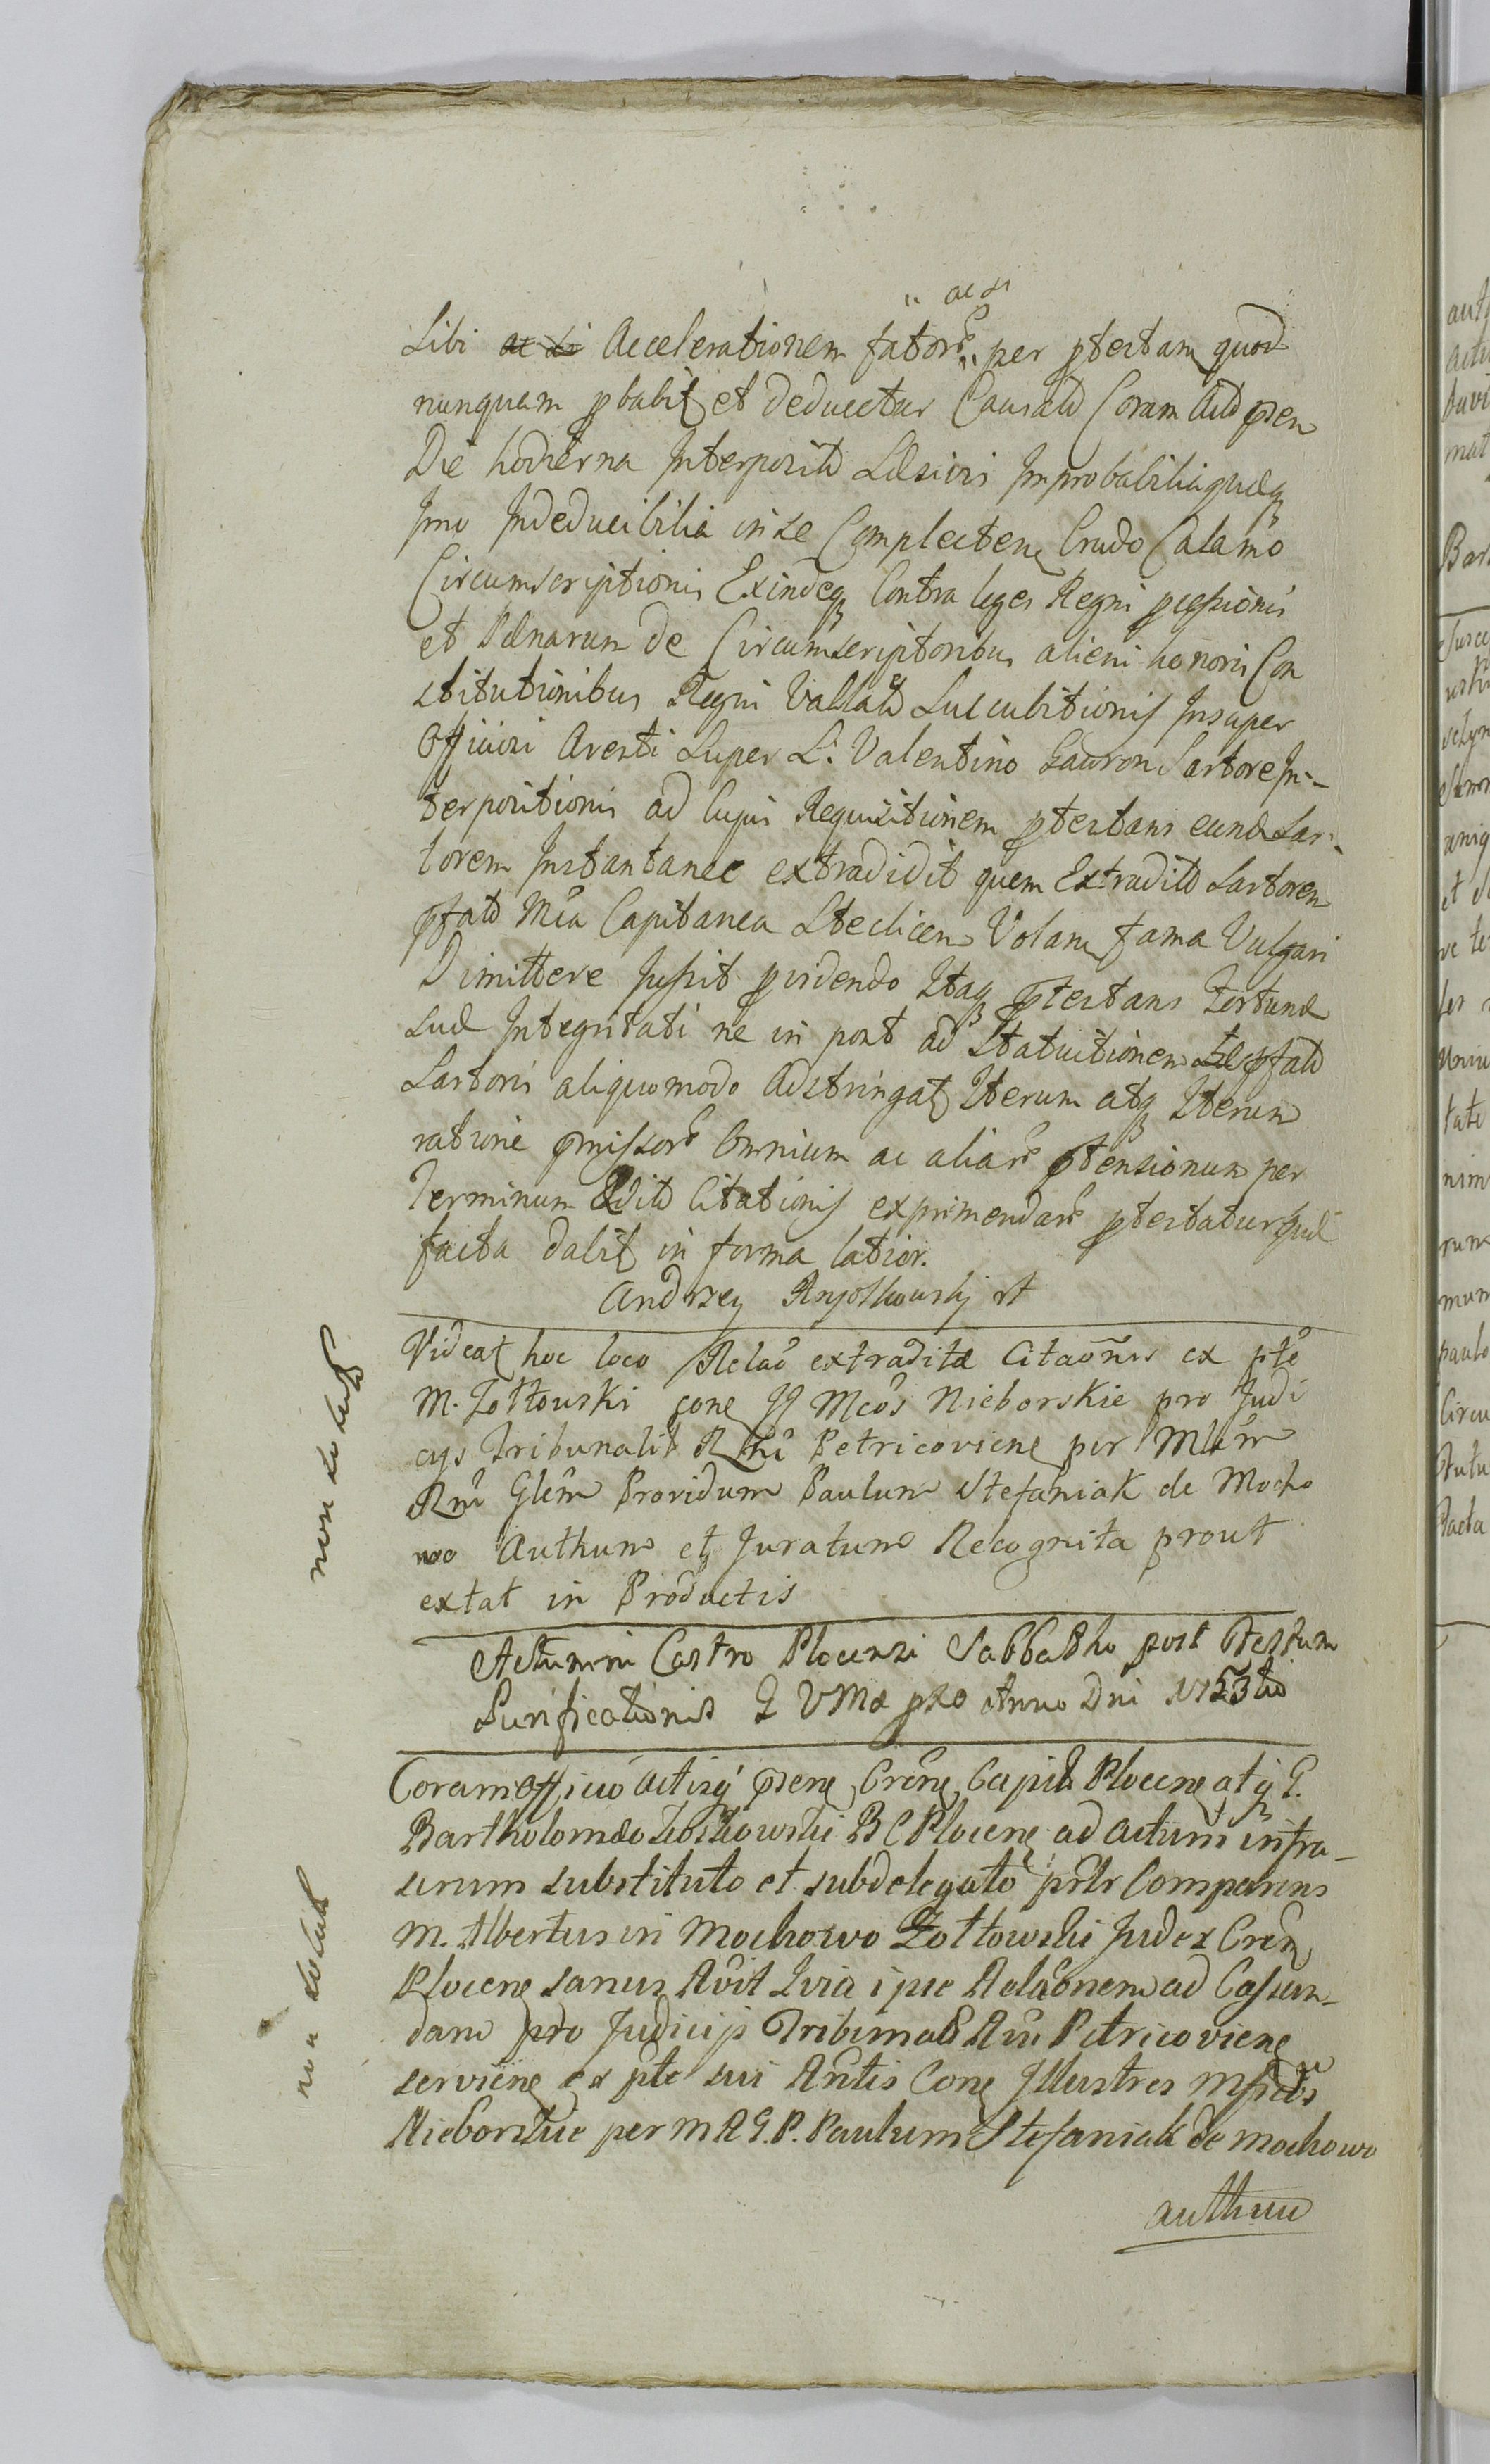 ac si
Sibi ac si Accelerationem fatorũ per ptestam quod
nunquam pbabit et deducetur Causatd Coram Actd pren
Die hodierna Interposita Læsivis Improbabiliaqueq
Imo Indeducibilia in se Complecten Crudo Calamo
Circumscriptionis Exindeq Contra leges Regni pgessionis
et Pænarum de Circumscriptoribus alieni honoris Con
stitutionibus Regni Vallatd Succubitionis Insuper
Officiosi Aresti Super L. Valentino Gauron Sartore In-
terpositionis ad Cujus Requisitionem ptestans eund Sar-
torem Instantanee extradidit quem Extraditd Sartorem
pfatd Mca Capitanea Steclicen Volan fama Vulgari
Dimittere Jussit pvidendo Itaq ptestans Fortunæ
Suæ Integritati ne in post ad Statuitionem pfatd
Sartoris aliquomodo Adstringat Iterum atq Iterum
ratione pmissorũ Omnium ac aliarũ ptensionum per
Terminum Editd Citationis exprimendarũ ptestatur quæ
facta dabit in forma latior.
Andrzey
Videat hoc loco Relaõ extraditæ Citaõnis ex pte
M. Zołtowski cone JJ Mcos Nieborskie pro Judi
cys Tribunalit Rgni Petricoviene per Mlem
Rni Glem Providum Paulum Stefaniak de Mocho
wo Authum et Juratum Recognita prout
extat in Productis
Actum in Castro Plocensi Sabbatho post Festum
Purificationis B VMæ pro Anno Dni 1753tio
Coram Officio Actisq prene Crene Capit Plocene atq G.
Bartholomæo BC Plocene ad actum infra-
serum substituto et subdelegato prlr Comparens
M. Albertus in Mochowo Zołtowski Judex Cren
Plocene sanus Avit Ivia ipse Relãonem ad Cassan-
dam pro Judicijs Tribunalt Rni Petricoviene
serviene ex pte sui Antis Cone Illustres Mficos
Nieborskie per M R G. P. Paulum Stefaniak de Mochowo
authum
non solut
non solut